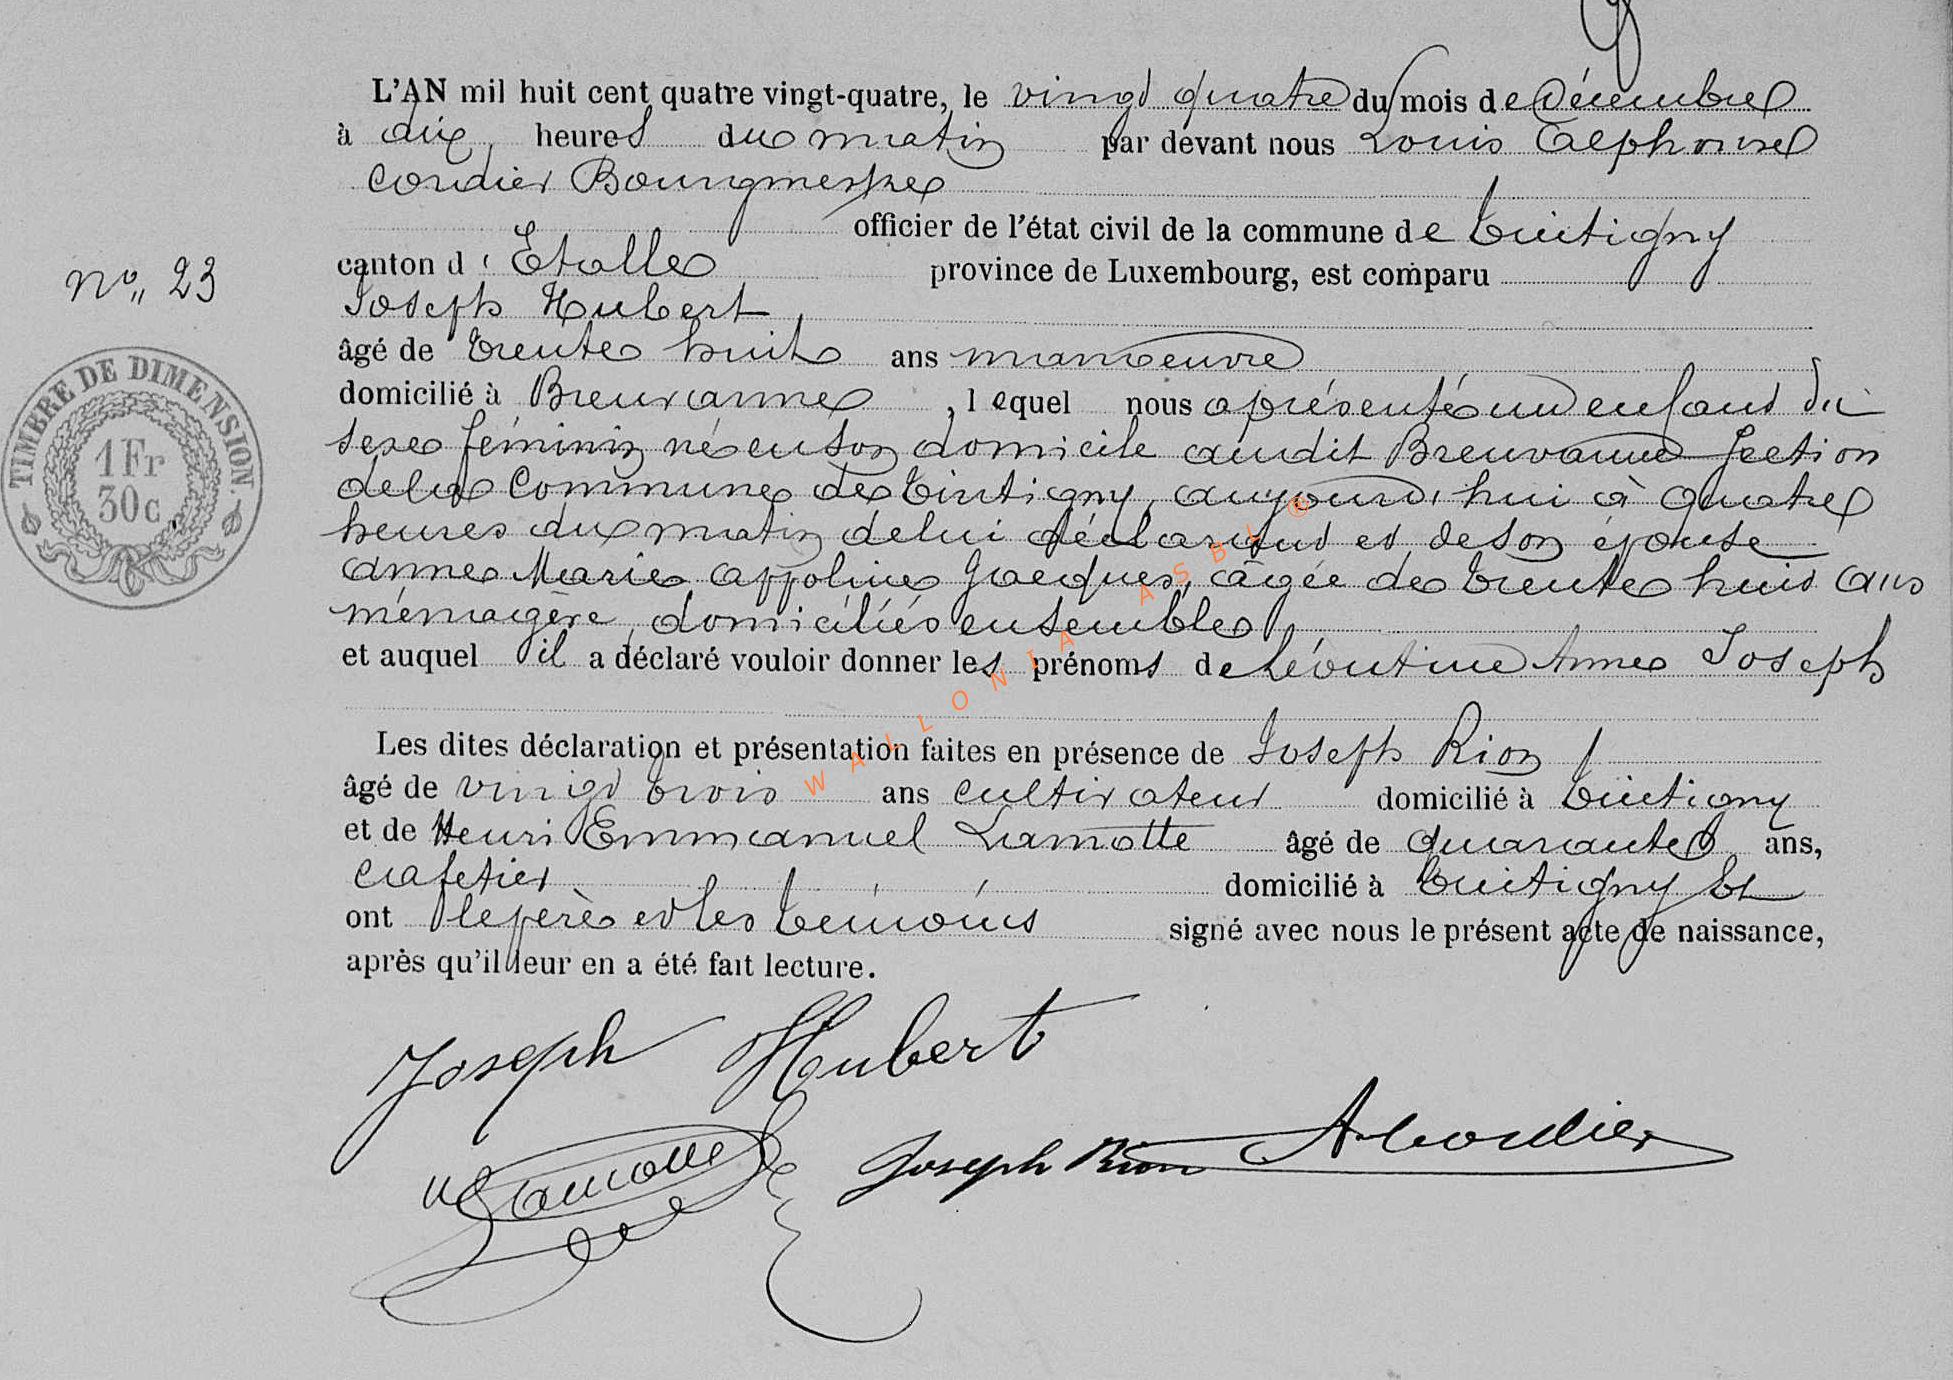 L'AN mil huit cent quatre vingt-quatre, le vingt quatre du mois de Décembre
à dix heures du matin par devant nous Louis Alphonse
Cordier Bourgmestre
officier de l'état civil de la commune de Tintigny
canton d'Etalle province de Luxembourg, est comparu
Joseph Hubert
âgé de trente huit ans manoeuvre
domicilié à Breuvanne, lequel nous a présenté un enfant du
sexe féminin né en son domicile audit Breuvanne Section
de la Commune de Tintigny, aujourd'hui à quatre
heures du matin de lui déclarant et de son épouse
Anne Marie Appoline Jacques, âgée de trente huit ans
ménagère, domiciliés ensemble
et auquel il a déclaré vouloir donner les prénoms de Léontine Anne Joseph
Les dites déclaration et présentation faites en présence de Joseph Rion
âgé de vingt trois ans cultivateur domicilié à Tintigny
et de Henri Emmanuel Lamotte âgé de quarante ans,
cafetier domicilié à Tintigny Et
ont le père et les témoins signé avec nous le présent acte de naissance,
après qu'il leur en a été fait lecture.
No, 23
TIMBRE DE DIMENSION.
1 Fr
30 c
Joseph Hubert
Lamotte
Joseph Rion
A Cordier
WALLONIA ASBL ®